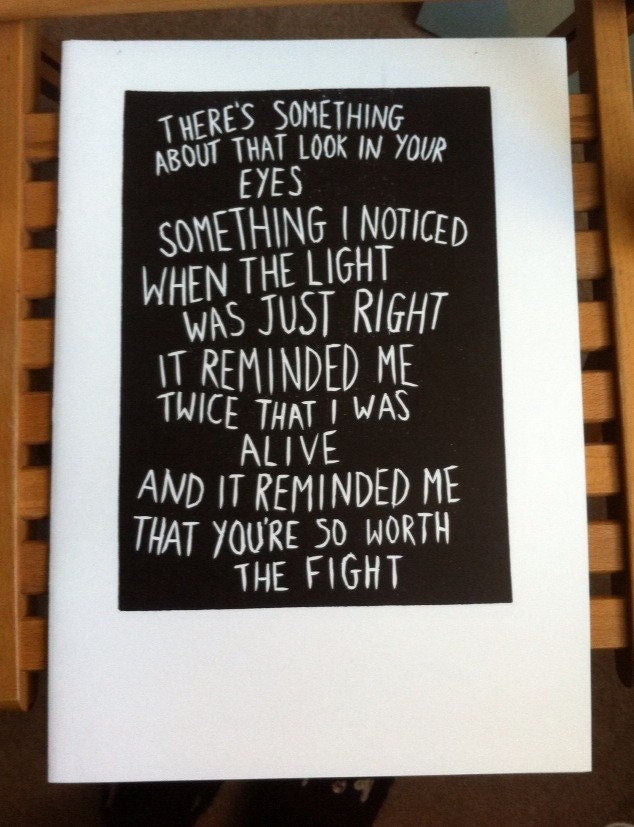 THERE'S SOMETHING
ABOUT THAT LOOK IN YOUR
EYES
SOMETHING I NOTICED
WHEN THE LIGHT
WAS JUST RIGHT
IT REMINDED ME
TWICE THAT I WAS
ALIVE
AND IT REMINDED ME
THAT YOU'RE SO WORTH
THE FIGHT